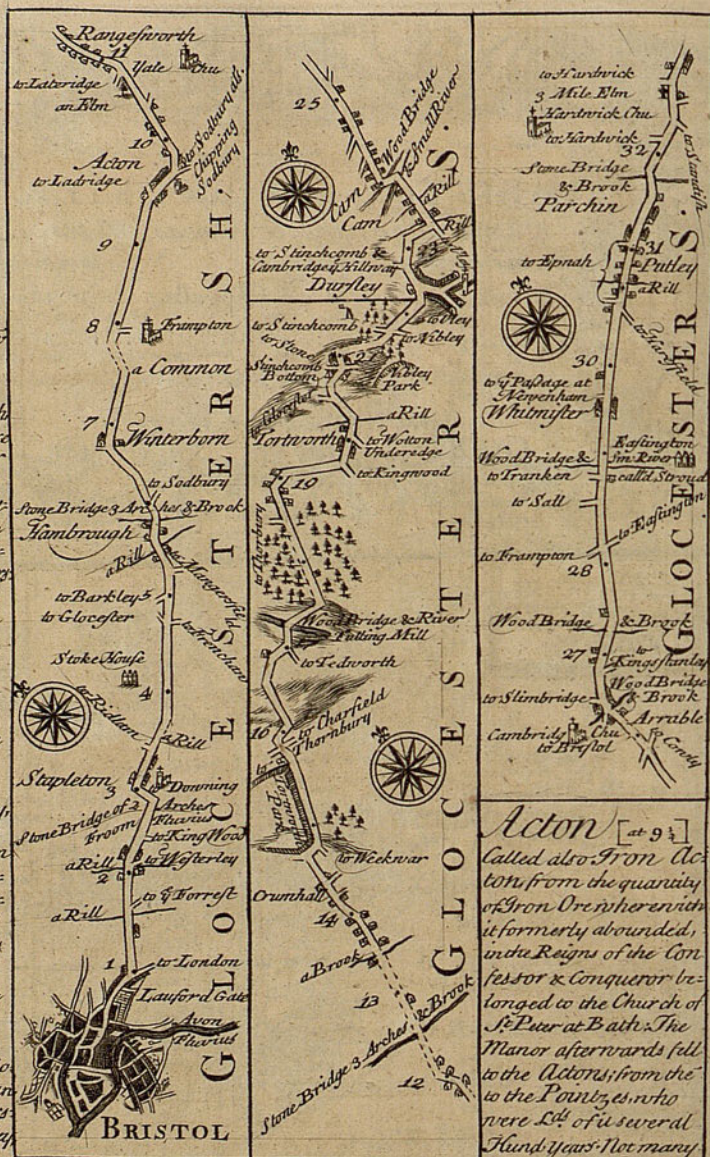 Rangesworth
11
Yale
Chu
to Lateridge
an Elm
10
to Sodbury als.
Chipping
Sodbury
Acton
to Ladridge
9
8
Frampton
a Common
7
Winterborn
to Sodbury
Stone Bridge 3 Arches & Brook
Hambrough
a Rill
to Mangersfeld
to Barkley
5
to Glocester
to Frenchan
Stoke House
4
to Ridlam
a Rill
Stapleton
3
Downing
Stone Bridge of 2
Arches
Froom
Fluvius
to King Wood
a Rill
to Westerley
2
to ye Forrest
a Rill
1
to London
Lauford Gate
Avon
Fluvius
BRISTOL
GLOCESTERSH.
25
Wood Bridge
& Small River
Cam
a Rill
Cam
Rill
to Stinchcomb &
23
Cambridge ye Hillway
Dursley
to Uley
to Stinchcomb
to Nibley
to Stone
Stinchcomb
Bottom
Nibley
Park
to Glocester
a Rill
Tortworth
to Wotton
Underedge
to Kingwood
19
to Thornbury
Wood Bridge & River
Tatling Mill
to Tedworth
to Charfield
16
Thornbury
Park
to Weekwar
Crumhall
14
a Brook
13
Stone Bridge 3 Arches & Brook
12
GLOCESTERS.
to Hardwick
3 Mile Elm
Hardwick Chu
to Hardwick
32
to Standish
Stone Bridge
& Brook
Parchin
31
to Epnah
Putley
a Rill
to Harsfield
30
to ye Passage at
Newenham
Whitmister
Eastington
Wood Bridge &
Sm. River
to Tranken
calld Stroud
to Sall
to Eastington
to Frampton
28
Wood Bridge
& Brook
27
to
Kingstanlay
Wood Bridge
to Slimbridge
& Brook
Arrable
Cambridg
Chu
to Bristol
to Comly
GLOCESTERS.
Acton [at 9¼]
Called also Iron Ac=
ton, from the quantity
of Iron Ore wherewith
it formerly abounded,
in the Reigns of the Con
fessor & Conqueror be=
longed to the Church of
St. Peter at Bath. The
Manor afterwards fell
to the Actons; from the
to the Pointzes, who
were Lds. of it several
Hund Years. Not many